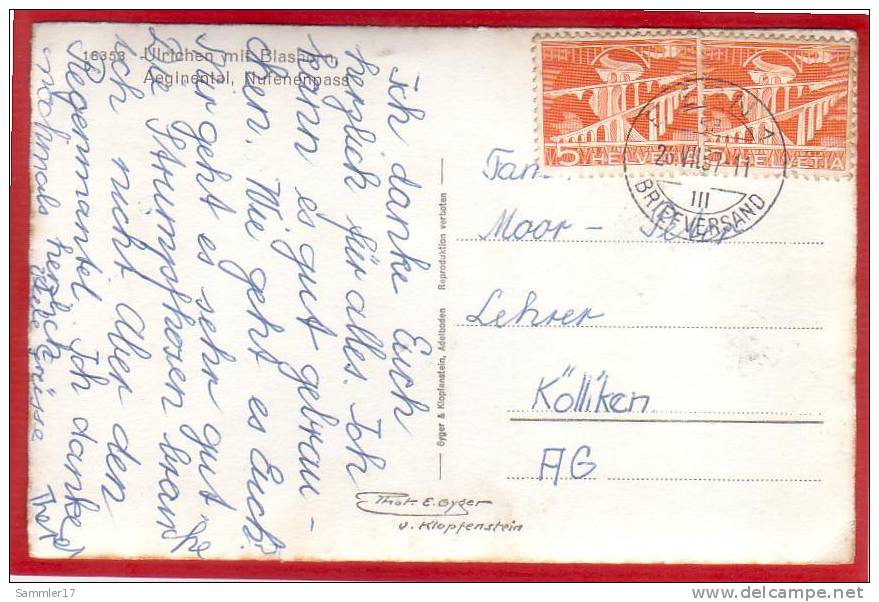 16358 Ulrichen mit Blashorn
Aeginental, Nufenenpass
Ich danke Euch
herzlich für alles. Ich
kann es gut gebrau-
chen. Wie geht es Euch?
Mir geht es sehr gut
Die Strumpfhosen brauche
ich nicht Aber den
Regenmantel. Ich danke
nochmals herzlich
Viele grüsse
Fam.
Moor -
Lehrer
Kölliken
AG
5 HELVETIA
HELVETIA
VII.57-11
III
BRIEFVERSAND
Gyger & Klopfenstein, Adelboden
Reproduktion verboten
Phot. E. Gyger
u. Klopfenstein
Sammler17
delcampe.net